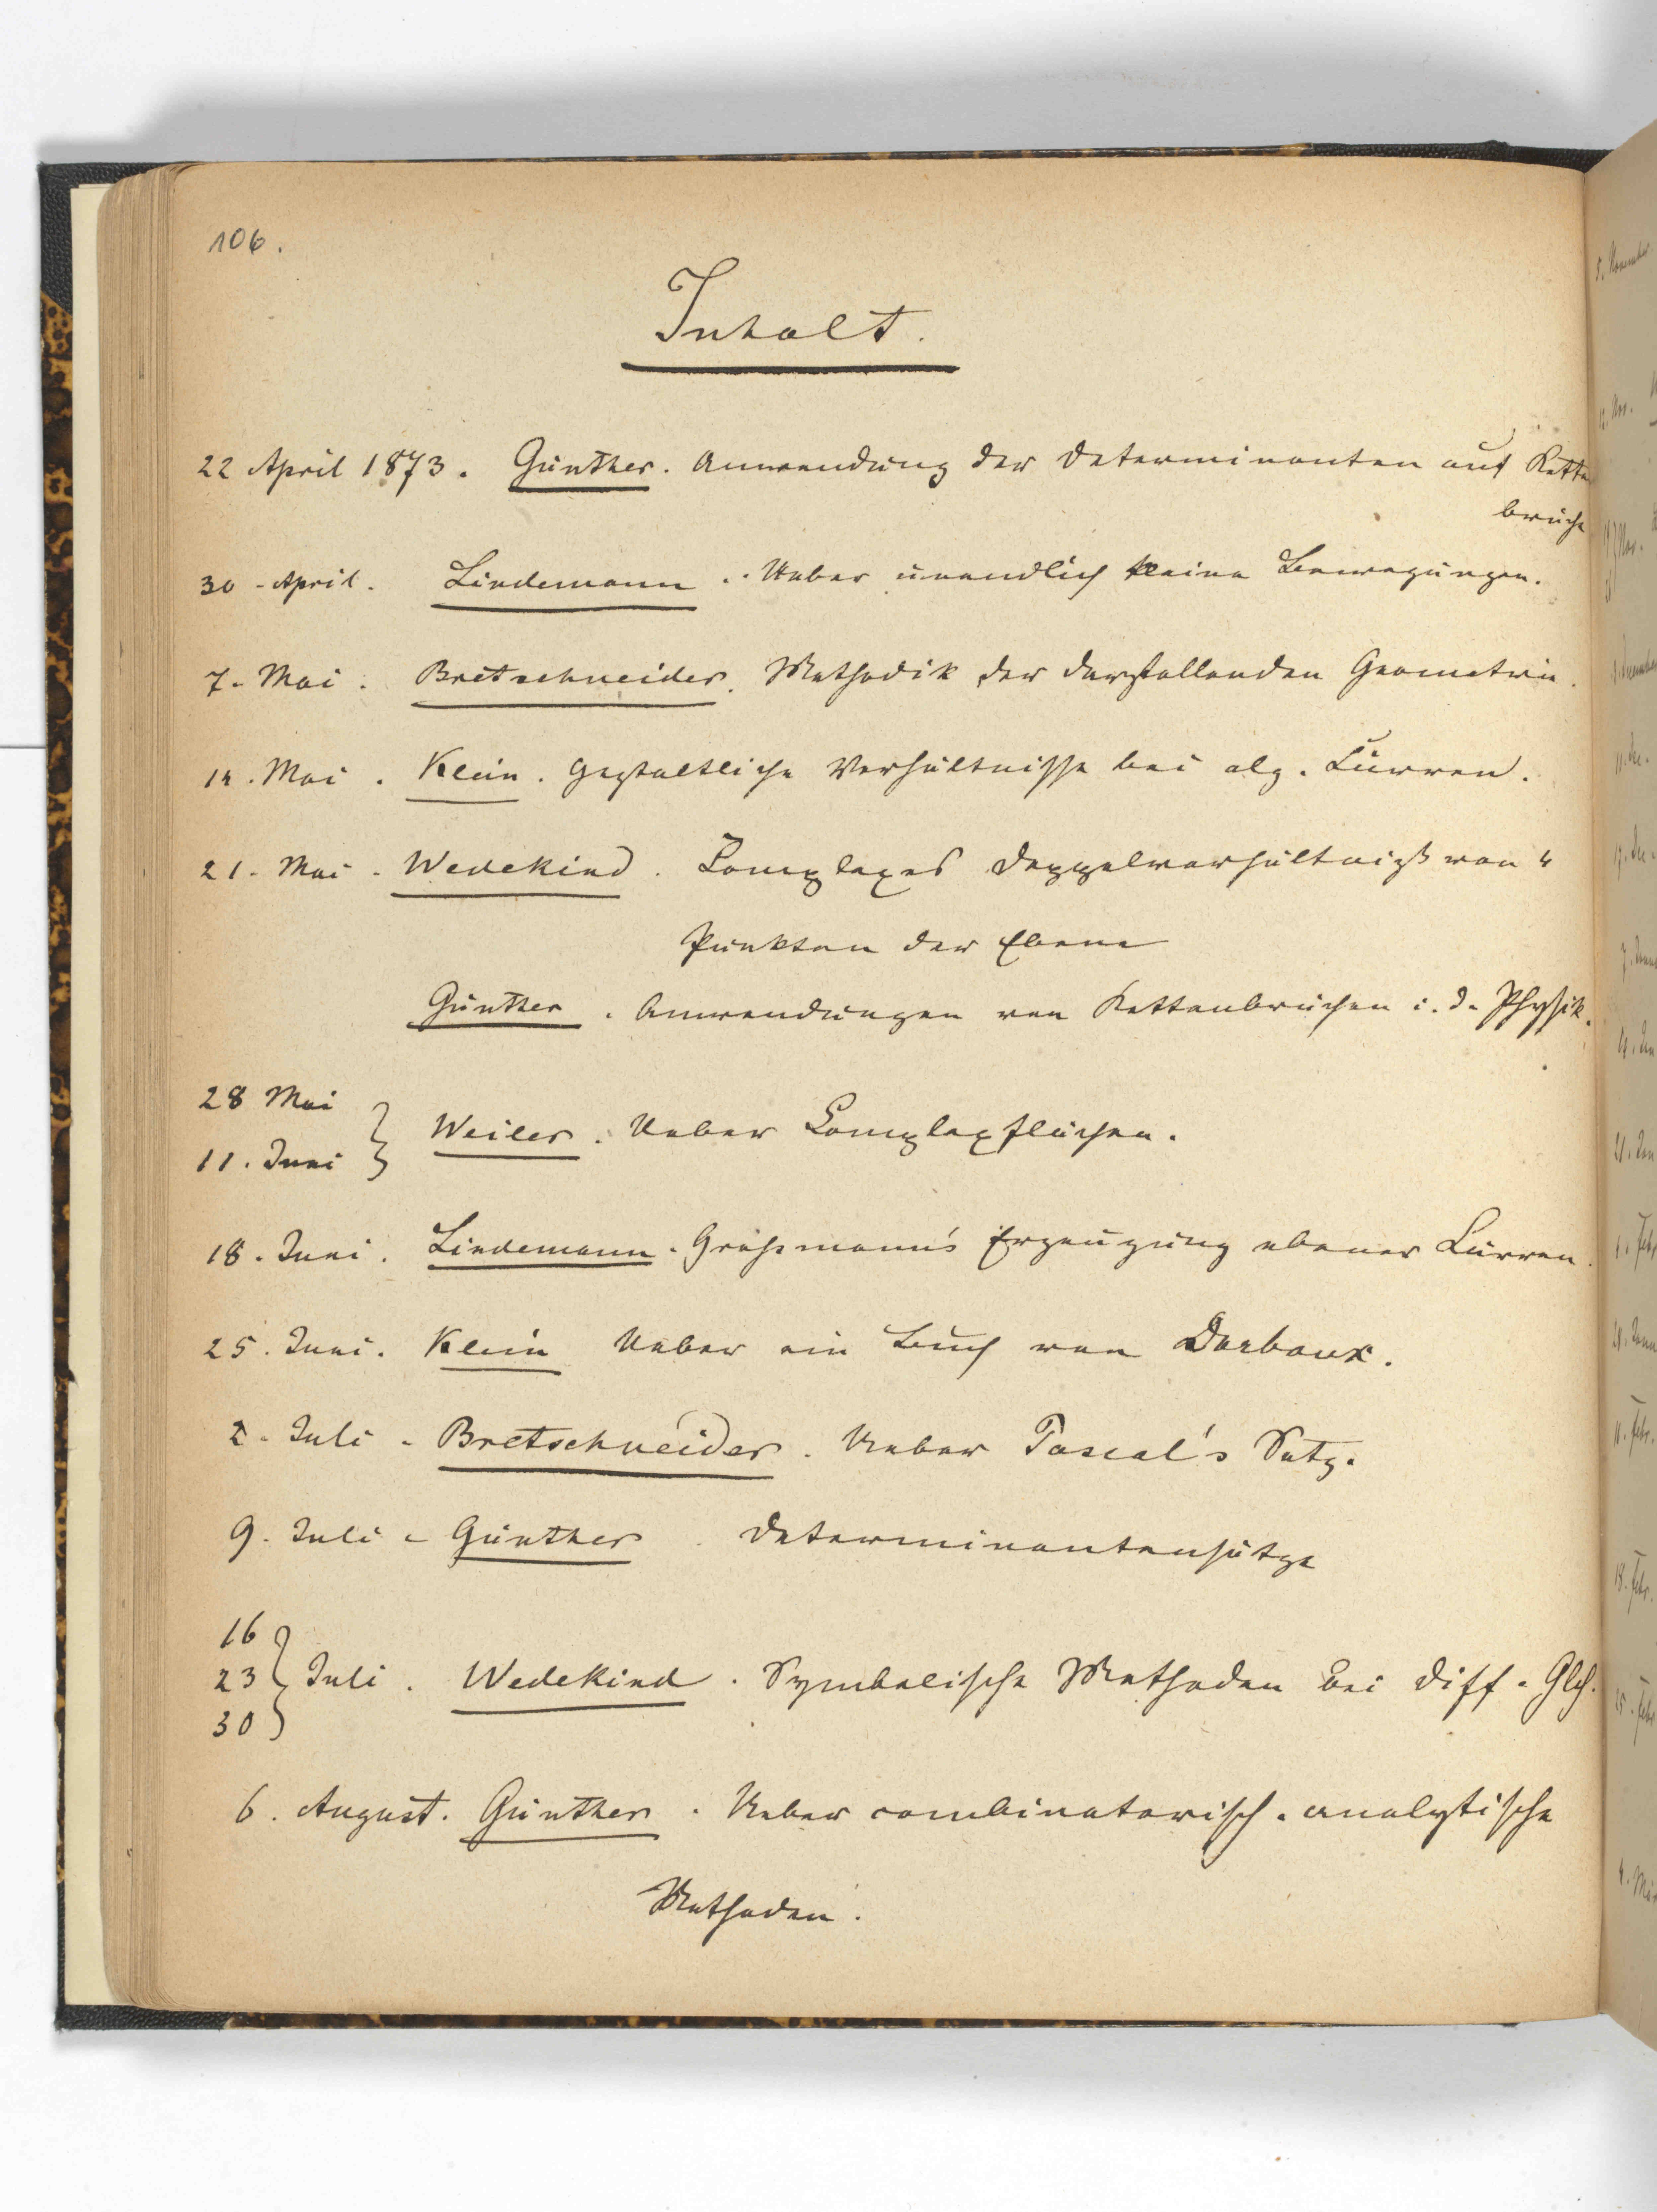 106.
Inhalt.
22 April 1873. Günther. Anwendung der Determinanten auf Kette
brüche
30. April. Lindemann. Ueber unendlich kleine Bewegungen.
7. Mai. Bretschneider. Methodik der darstellenden Geometrie.
14. Mai. Klein. Gestaltliche Verhältnisse bei alg. Curven.
21. Mai. Wedekind. Complexes Doppelverhältniß von 4
Punkten der Ebene
Günther. Anwendungen von Kettenbrüchen i. d. Physik.
28 Mai
11. Juni } Weiler. Ueber Complexflächen.
18. Juni. Lindemann. Graßmann's Erzeugung ebener Curven.
25. Juni. Klein Ueber ein Buch von Darboux.
2. Juli. Bretschneider. Ueber Pascal's Satz.
9. Juli. Günther. Determinantensätze
16
23 } Juli. Wedekind. Symbolische Methoden bei Diff. Glch.
30
6. August. Günther. Ueber combinatorisch-analytische
Methoden.